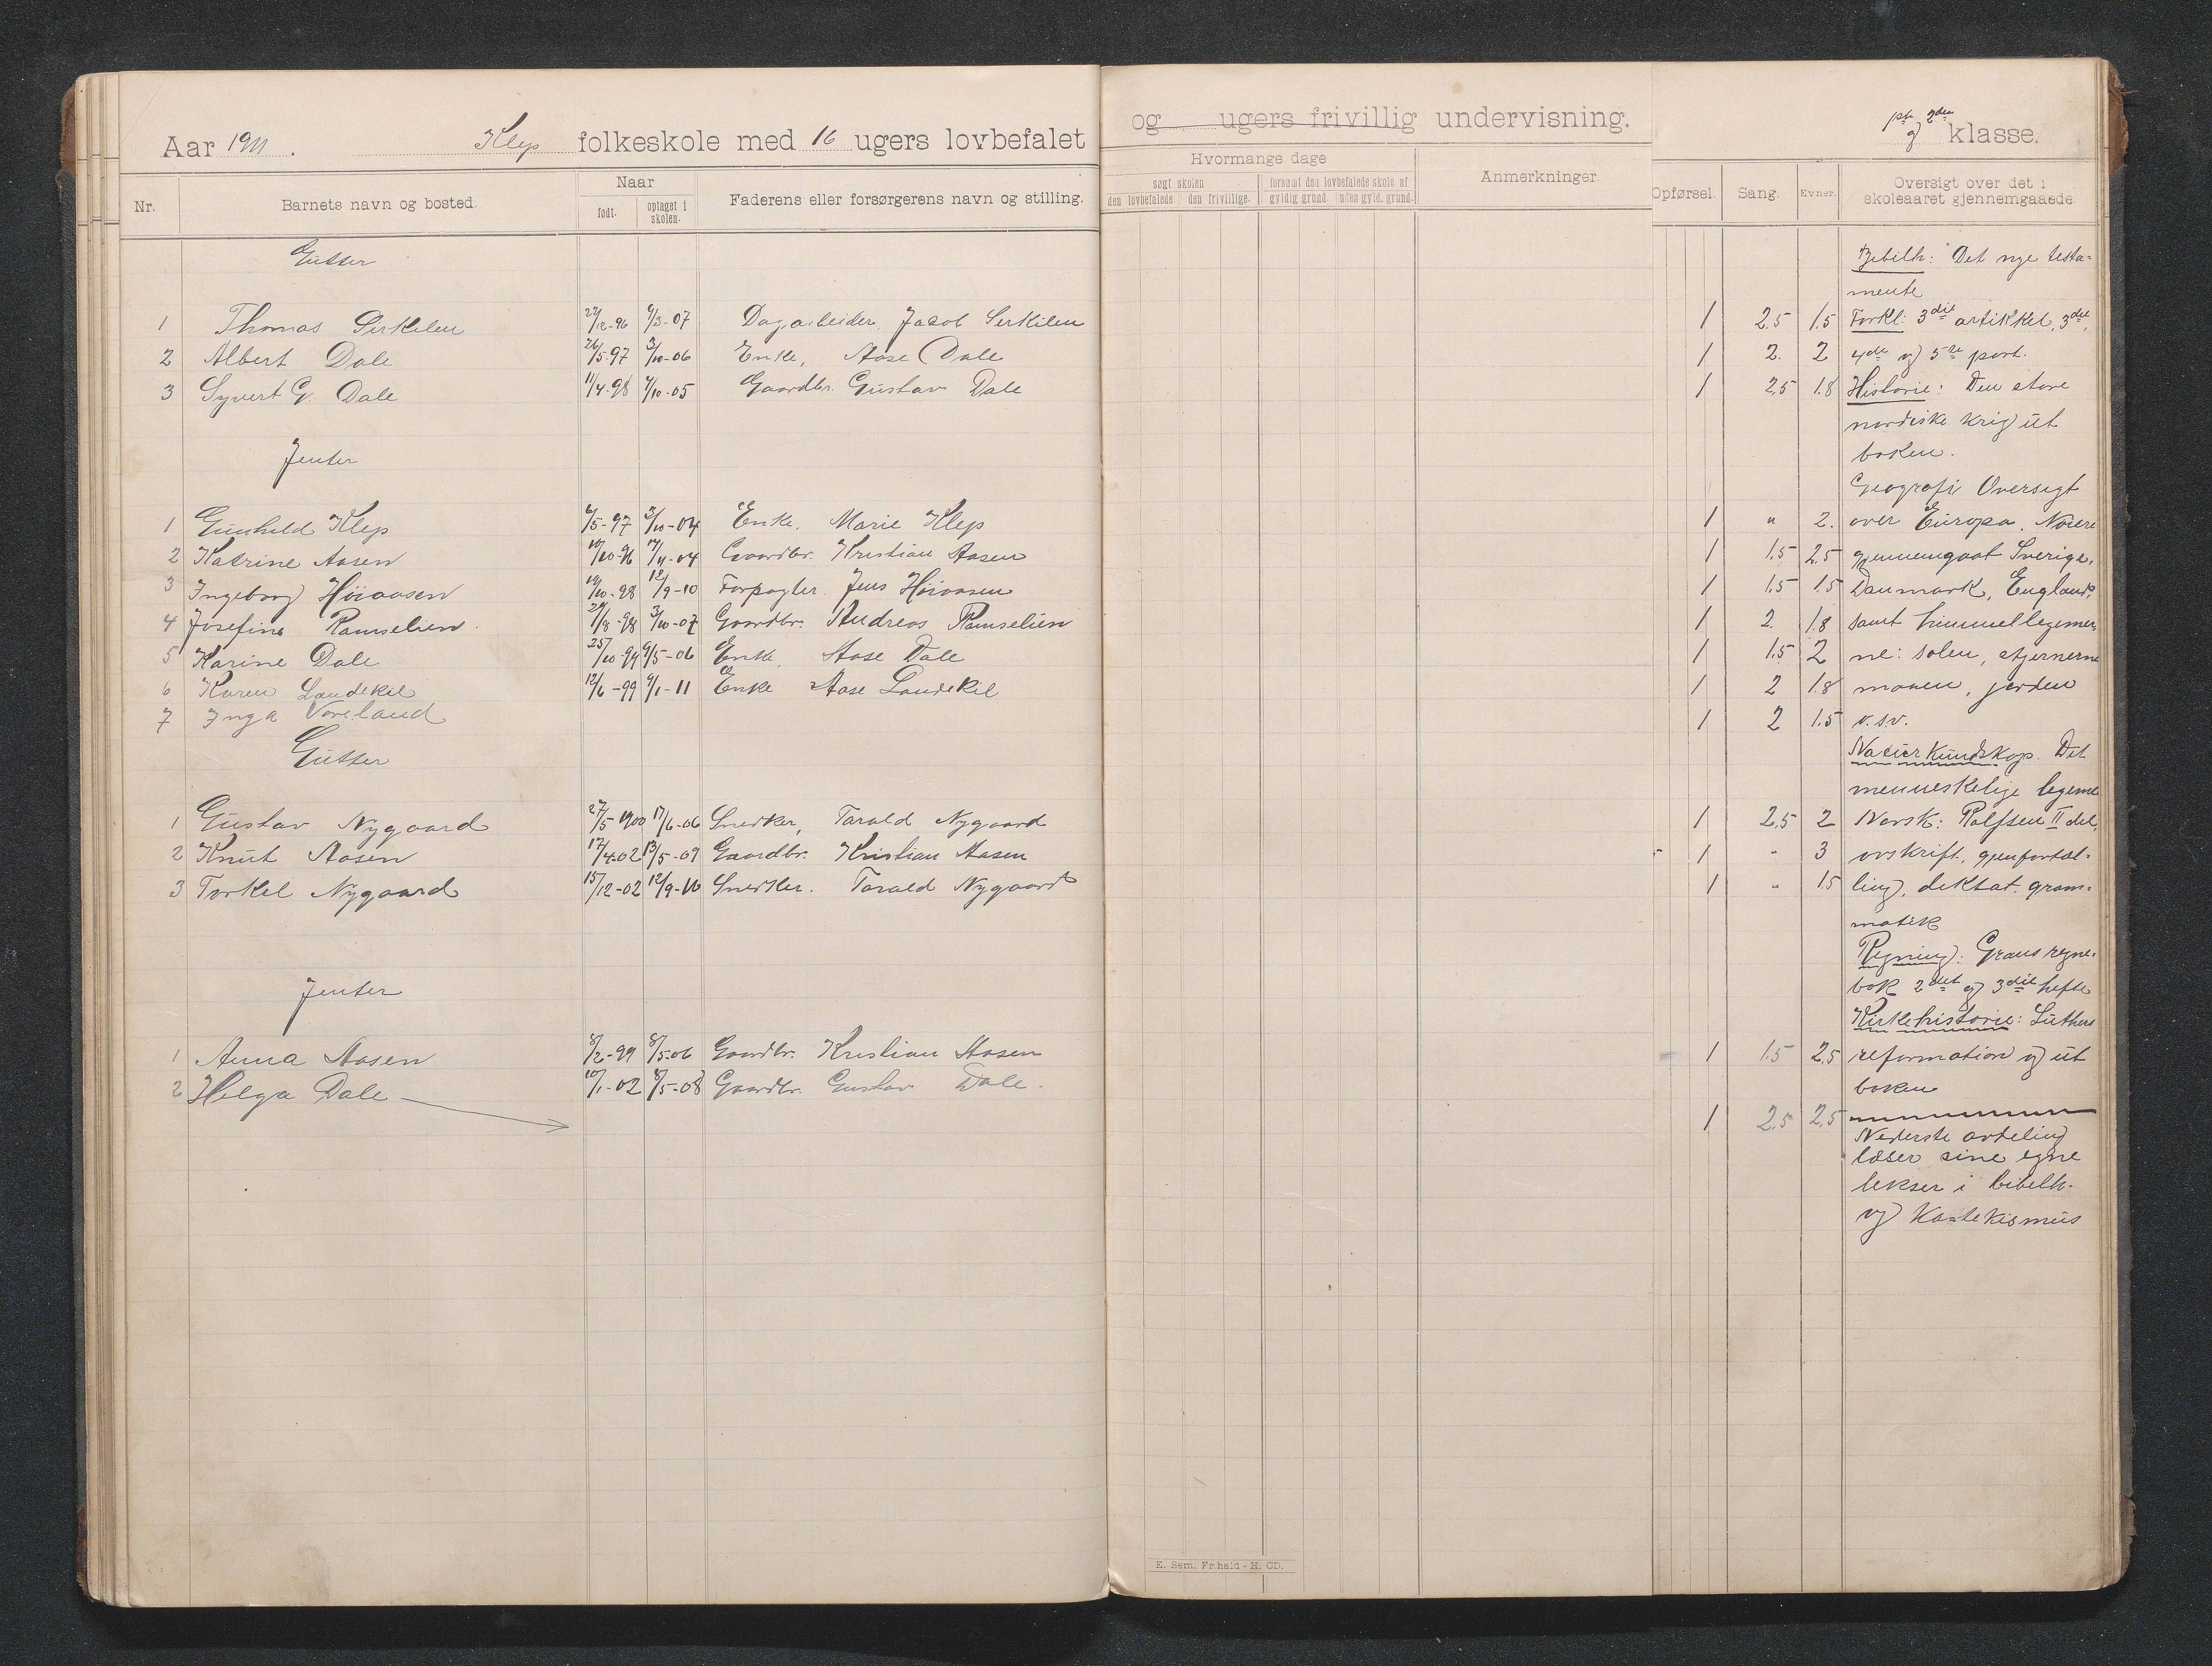 Aar 1911. Klep folkeskole med 16 ugers lovbefalet og ugers frivillig undervisning. 1ste og 2den klasse.
Nr. Barnets navn og bosted. Naar født. optaget i skolen. Faderens eller forsørgerens navn og stilling.
Hvormange dage
søgt skolen den lovbefalede den frivillige. forsømt den lovbefalede skole af gyldig grund. uden gyld. grund.
Anmerkninger.
Opførsel. Sang. Evner. Oversigt over det i skoleaaret gjennemgaaede.
Gutter
1 Thomas Sirkelen 22/12-96 4/3-07 Dagarbeider, Jacob Serkilen 1 2.5 1.5
2 Albert Dale 26/5-97 3/10-06 Enke, Aase Dale 1 2. 2
3 Syvert G. Dale 11/4-98 4/10-05 Gaardbr. Gustav Dale 1 2.5 1.8
Jenter
1 Gunhild Klep 6/5-97 3/10-04 Enke, Marie Klep 1 " 2.
2 Katrine Aasen 10/10-96 14/11-04 Gaardbr. Kristian Aasen 1 1.5 2.5
3 Ingeborg Høiaasen 19/10-98 12/9-10 Forpagter. Jens Høiaasen 1 1.5 1.5
4 Josefine Ramselien 29/8-98 3/10-07 Gaardbr. Andreas Ramselien 1 2 1.8
5 Karine Dale 25/10-99 9/5-06 Enke, Aase Dale 1 1.5 2
6 Karen Landekil 12/6-99 9/1-11 Enke Aase Landekil 1 2 1.8
7 Inga Voreland 1 2 1.5
Gutter
1 Gustav Nygaard 27/5 1900 17/6-06 Snedker, Tarald Nygaard 1 2.5 2
2 Knut Aasen 17/4-02 13/5-09 Gaardbr. Kristian Aasen 1 " 3
3 Torkel Nygaard 15/12-02 12/9-10 Snedker. Tarald Nygaard 1 " 1.5
Jenter
1 Anna Aasen 8/2-99 8/5-06 Gaardbr. Kristian Aasen 1 1.5 2.5
2 Helga Dale 10/1-02 8/5-08 Gaardbr. Gustav Dale. 1 2.5 2.5
Bibelh: Det nye testa=
mente
Forkl: 3die artikkel, 3die,
4de og 5te part.
Historie: Den store
nordiske krig ut
boken.
Geografi Oversigt
over Europa. Nøiere
gjennemgaat Sverige,
Danmark, England,
samt himmellegemer=
ne: solen, stjernerne
maanen, jorden
o.s.v.
Naturkundskap. Det
menneskelige legeme
Norsk: Rolfsen II del,
avskrift, gjenfortæl=
ling, diktat. gram=
matik
Regning: Graus regne=
bok 2det og 3die hefte
Kirkehistorie: Luthers
reformation og ut
boken
Nederste avdeling
læser sine egne
lekser i bibelh.
og Katekismus
E. Sem, Fr.hald - H. CD.